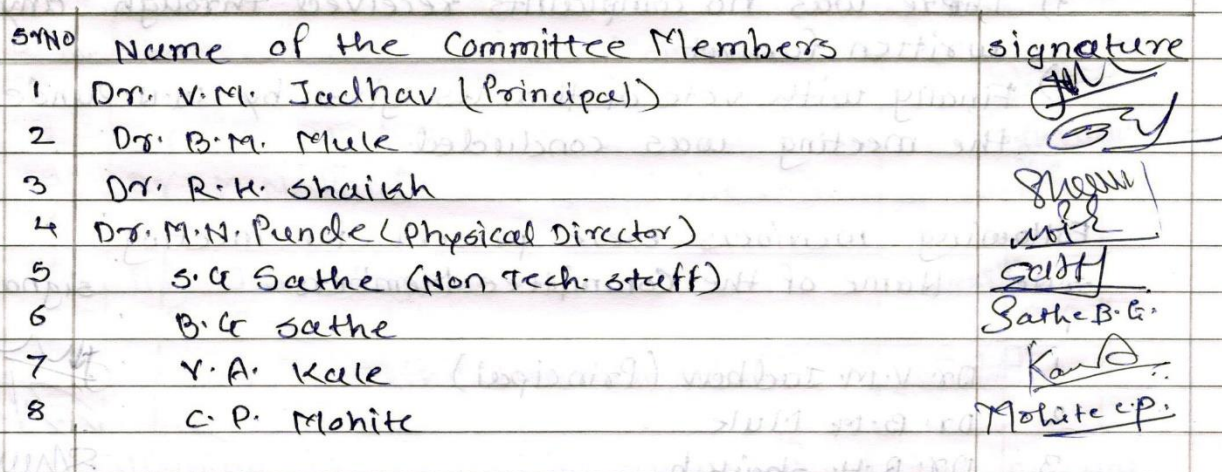 SrNO Name of the Committee Members signature
1 Dr. V.M. Jadhav (Principal)
2 Dr. B.M. Mule
3 Dr. R.H. Shaikh
4 Dr. M.N. Punde (Physical Director)
5 S.G Sathe (Non Tech. staff)
6 B.G Sathe Sathe B.G.
7 V.A. Kale
8 C.P. Mohite Mohite C.P.